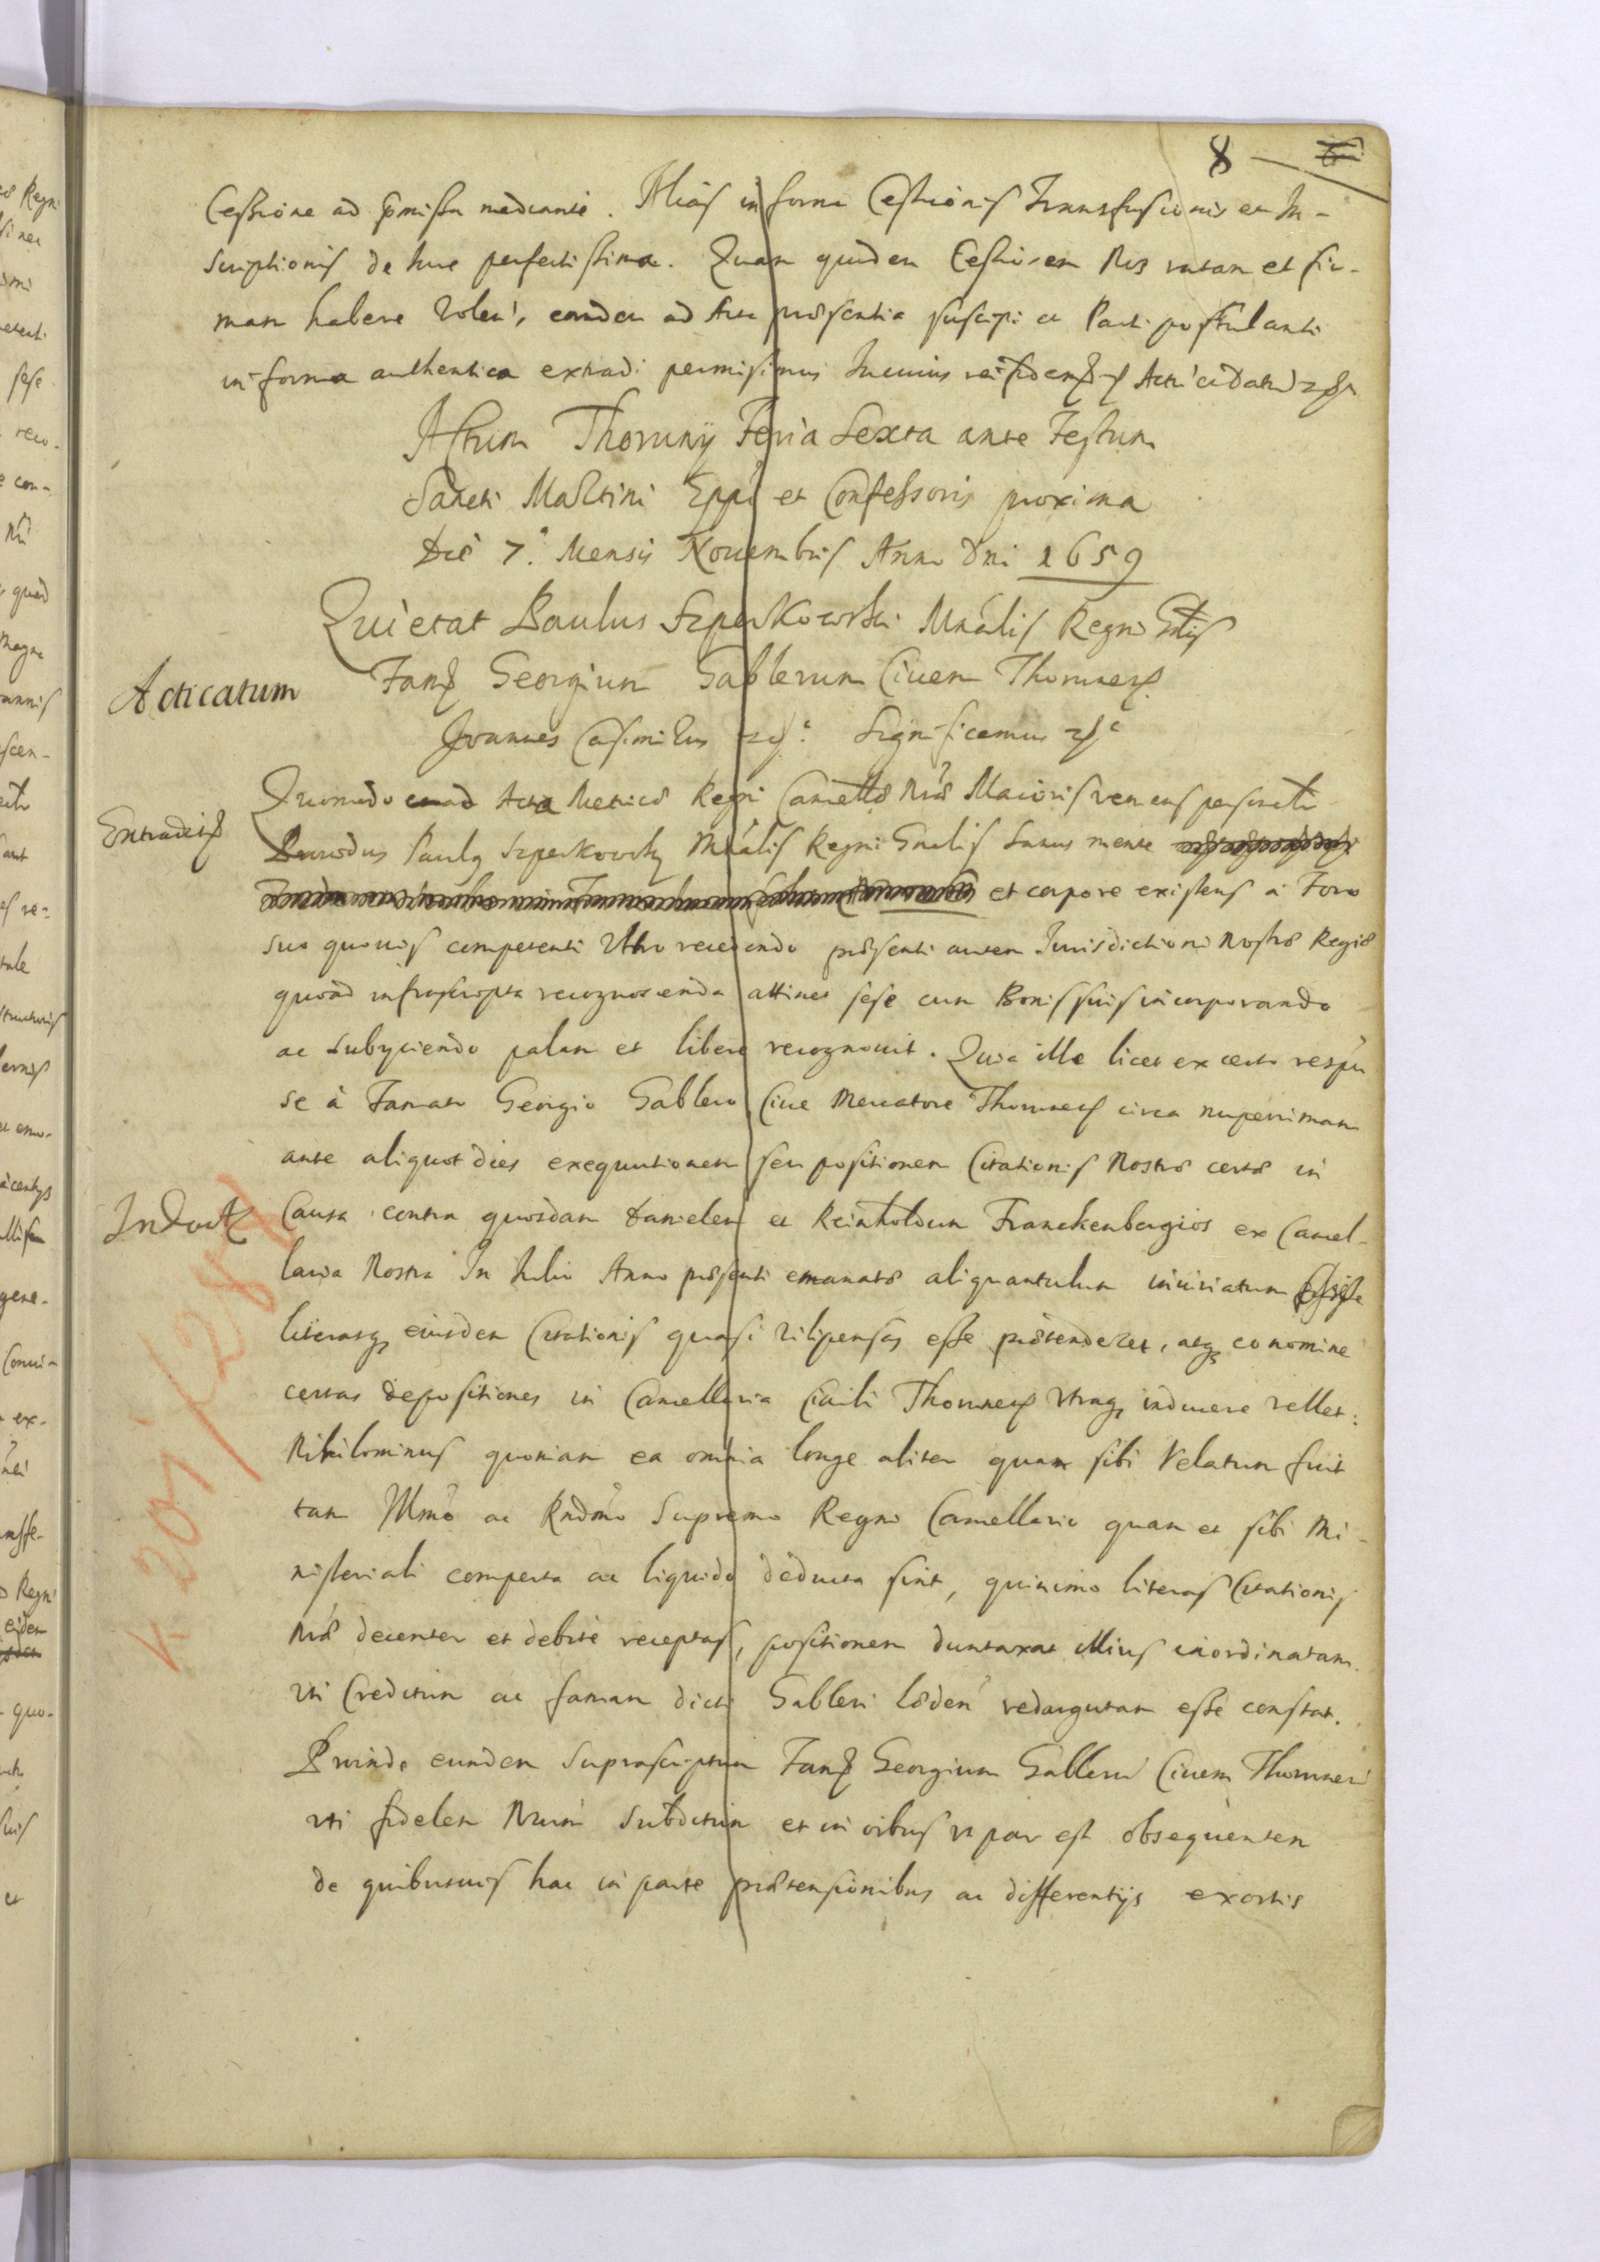 8
Cessione ad pmissa mediante. Alias in forma Cessionis Transfusionis et In-
scriptionis de Iure perfectissima. Quam quidem Cessionem Nos ratam et fir-
mam habere Volen, eandem ad Acta præsentia suscipi et Parti postulanti
in forma authentica extradi permisimus In cuius rei fidem Act et dat
Actum Thoruny Feria Sexta ante Festum
Sancti Martini Eppi et Confessoris proxima
Die 7. Mensis Nouembris Anno Dni 1659
Quietat Paulus Szperkowski Mnālis Regni Gnlis
Acticatum
Fam Georgium Gablerum Ciuem Thorunen
Joannes Casimirus Significamus
Quomodo ad Acta Metricæ Regni Cancellæ Nræ Maioris veniens personalr
Extradit
Prouidus Paulq Szperkowsky Mnālis Regni Gnalis sanus mente
et corpore existens à Foro
suo quouis competenti Vltro recedendo præsenti autem Jurisdictioni Nostræ Regiæ
quoad infrascripta recognoscenda attinet sese cum Bonis suis incorporando
ac subyciendo palam et libere recognouit. Quia ille licet ex certo respu
se à Famato Georgio Gablero Ciue Mercatore Thorunen circa nuperrimam
ante aliquot dies exequutionem seu positionem Citationis Nostræ certæ in
Induct
Causa contra quosdam Danielem et Reinholdum Franckenbergios ex Cancel-
laria Nostra In Julio Anno præsenti emanatæ aliquantulum iniuriatum
literasq eiusdem Citationis quasi vilipensas esse prætenderet, atq eo nomine
certas depositiones in Cancellaria Ciuili Thorunen Vtrinq inducere vellet:
Nihilominus quoniam ea omnia longe aliter quam sibi Relatum fuit
tam Illmo ac Rndmo Supremo Regni Cancellario quam et sibi Mi-
nisteriali comperta ac liquido deducta sint, quinimo literas Citationis
Nræ decenter et debite receptas, positionem duntaxat illius inordinatam
Vti Creditum ac famam dicti Gableri læden redargutam esse constat.
Proinde eundem suprascriptum Fam Georgium Gablerum Ciuem Thorunen
vti fidelem Nrum subditum et in oibus vt par est obsequentem
de quibusuis hac in parte prætensionibus ac differentijs exortis